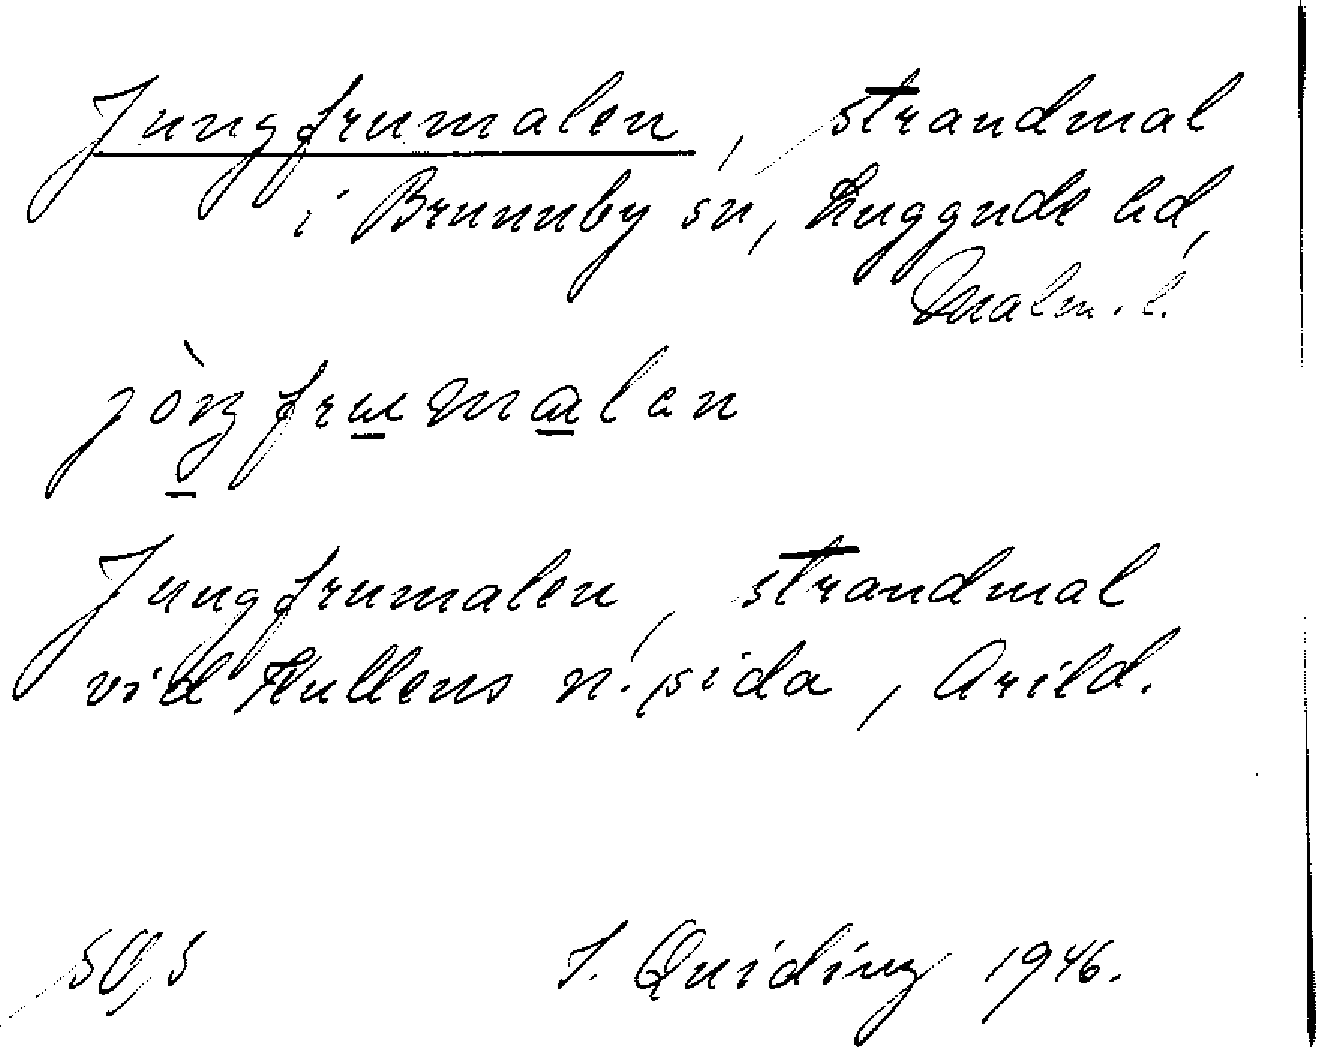 Jungfrumalen, strandmal
i Brunnby sn, Luggude hd,
Malm. l.
jòŋfrumalen
Jungfrumalen, strandmal
vid Kullens n. sida, Arild.
J. Quiding 1946.